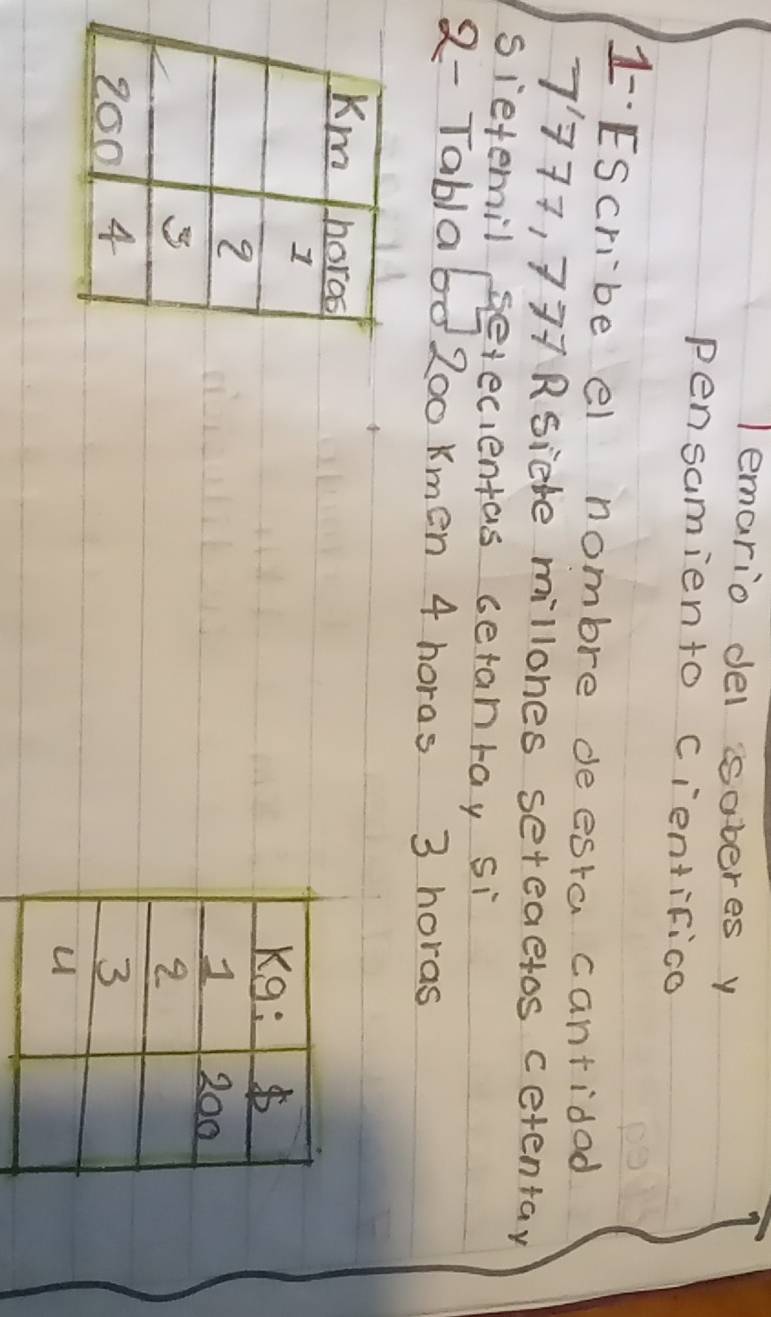 Temario del saberes y
Pensamiento científico
1-. EScribe el nombre de esta cantidad
7'777,777 R Siete millones seteaetos cetentay
sietemil setecientas cetantay si
2- Tabla 200 Km en 4 horas 3 horas
Km horas
1
2
3
200 4
Kg: $
1 200
2
3
4